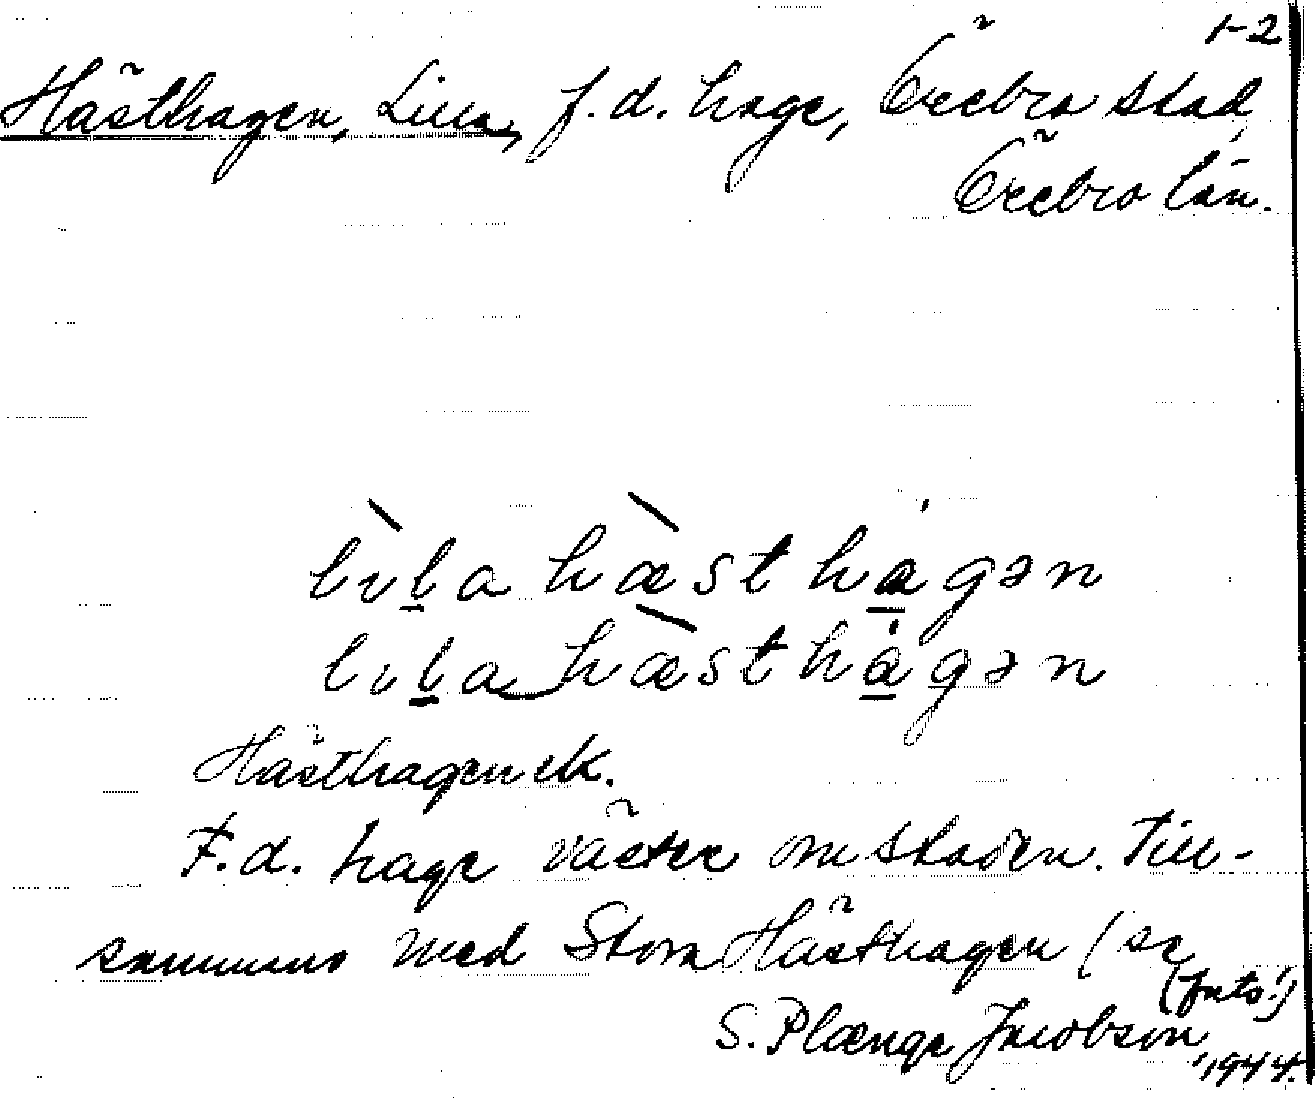 1-2
Hästhagen, Lilla, f.d. hage, Örebro stad,
Örebro län.
lıl̠a hæsth̀a̠gən
lıl̠a hæsthȧ̠gən
Hästhagen ek.
F.d. hage väster om staden. Till-
sammans med Stora Hästhagen (se
(forts.)
S. Plænge Jacobson
1944.